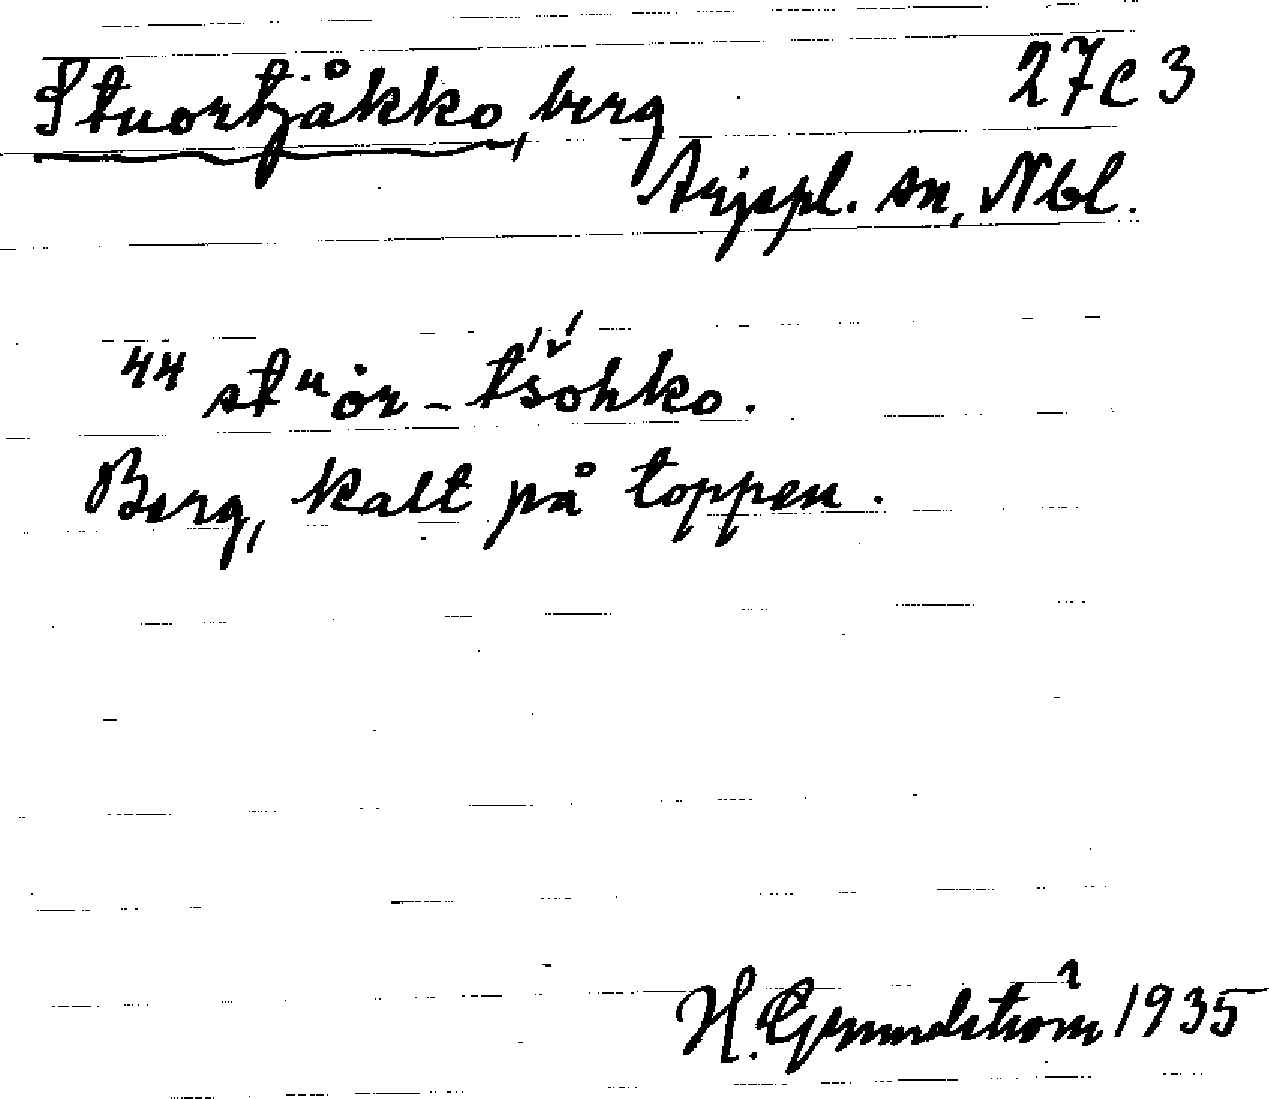 Stuortjåkko, berg 27C3
Arjepl. sn, Nbl.
44 stᵘȯr-t́š́ohko.
Berg, kalt på toppen.
H. Grundström 1935